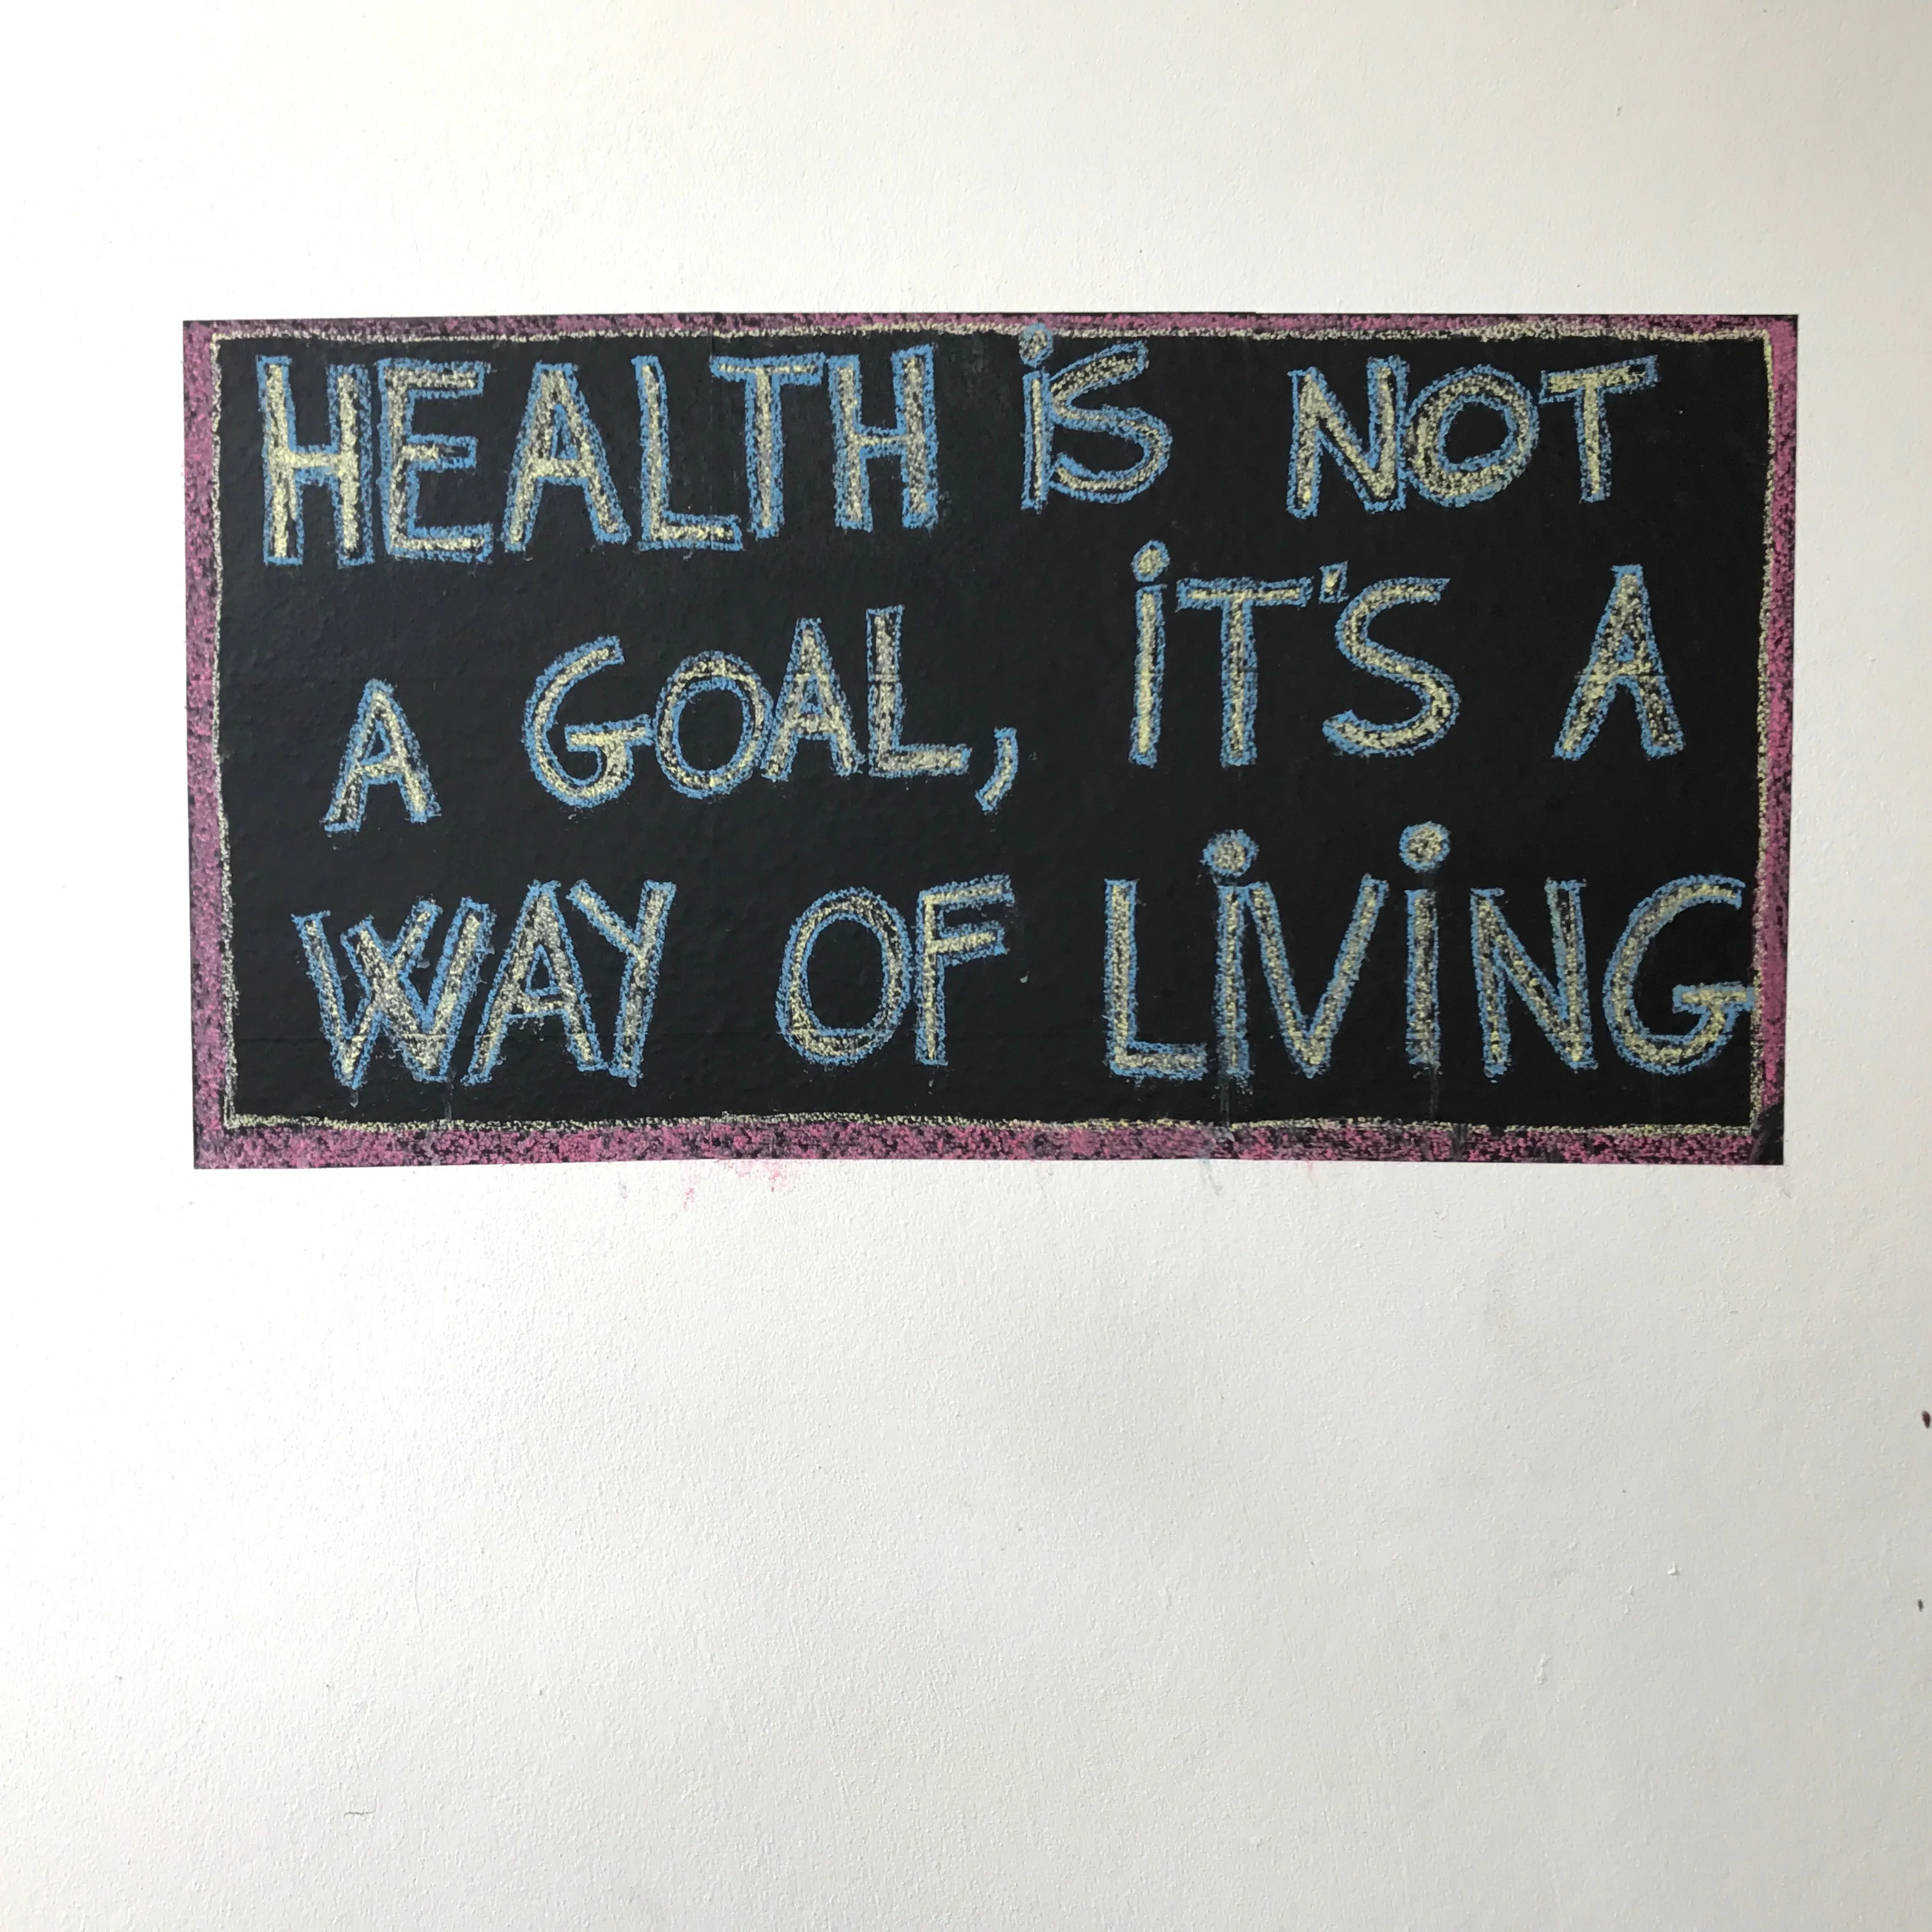 HEALTH iS NOT
A GOAL, iT'S A
WAY OF LiViNG